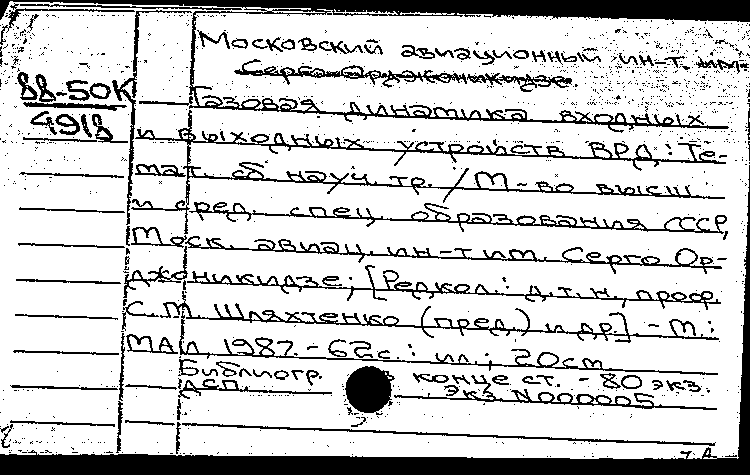 Московский авиационный ин-т. им.
Серго Орджоникидзе.
88-50К
4918
Газовая динамика входных
и выходных устройств ВРД: Те-
мат. сб. науч. тр. / М-во высш.
и сред. спец. образования СССР,
Моск. авиац. ин-т им. Серго Ор-
джоникидзе; [Редкол.: д.т.н., проф.
С.М. Шляхтенко (пред.) и др.]. - М.:
МАИ, 1987. - 62с. : ил.; 20см.
Библиогр. конце ст. - 80 экз.
ДСП. Экз. N000005.